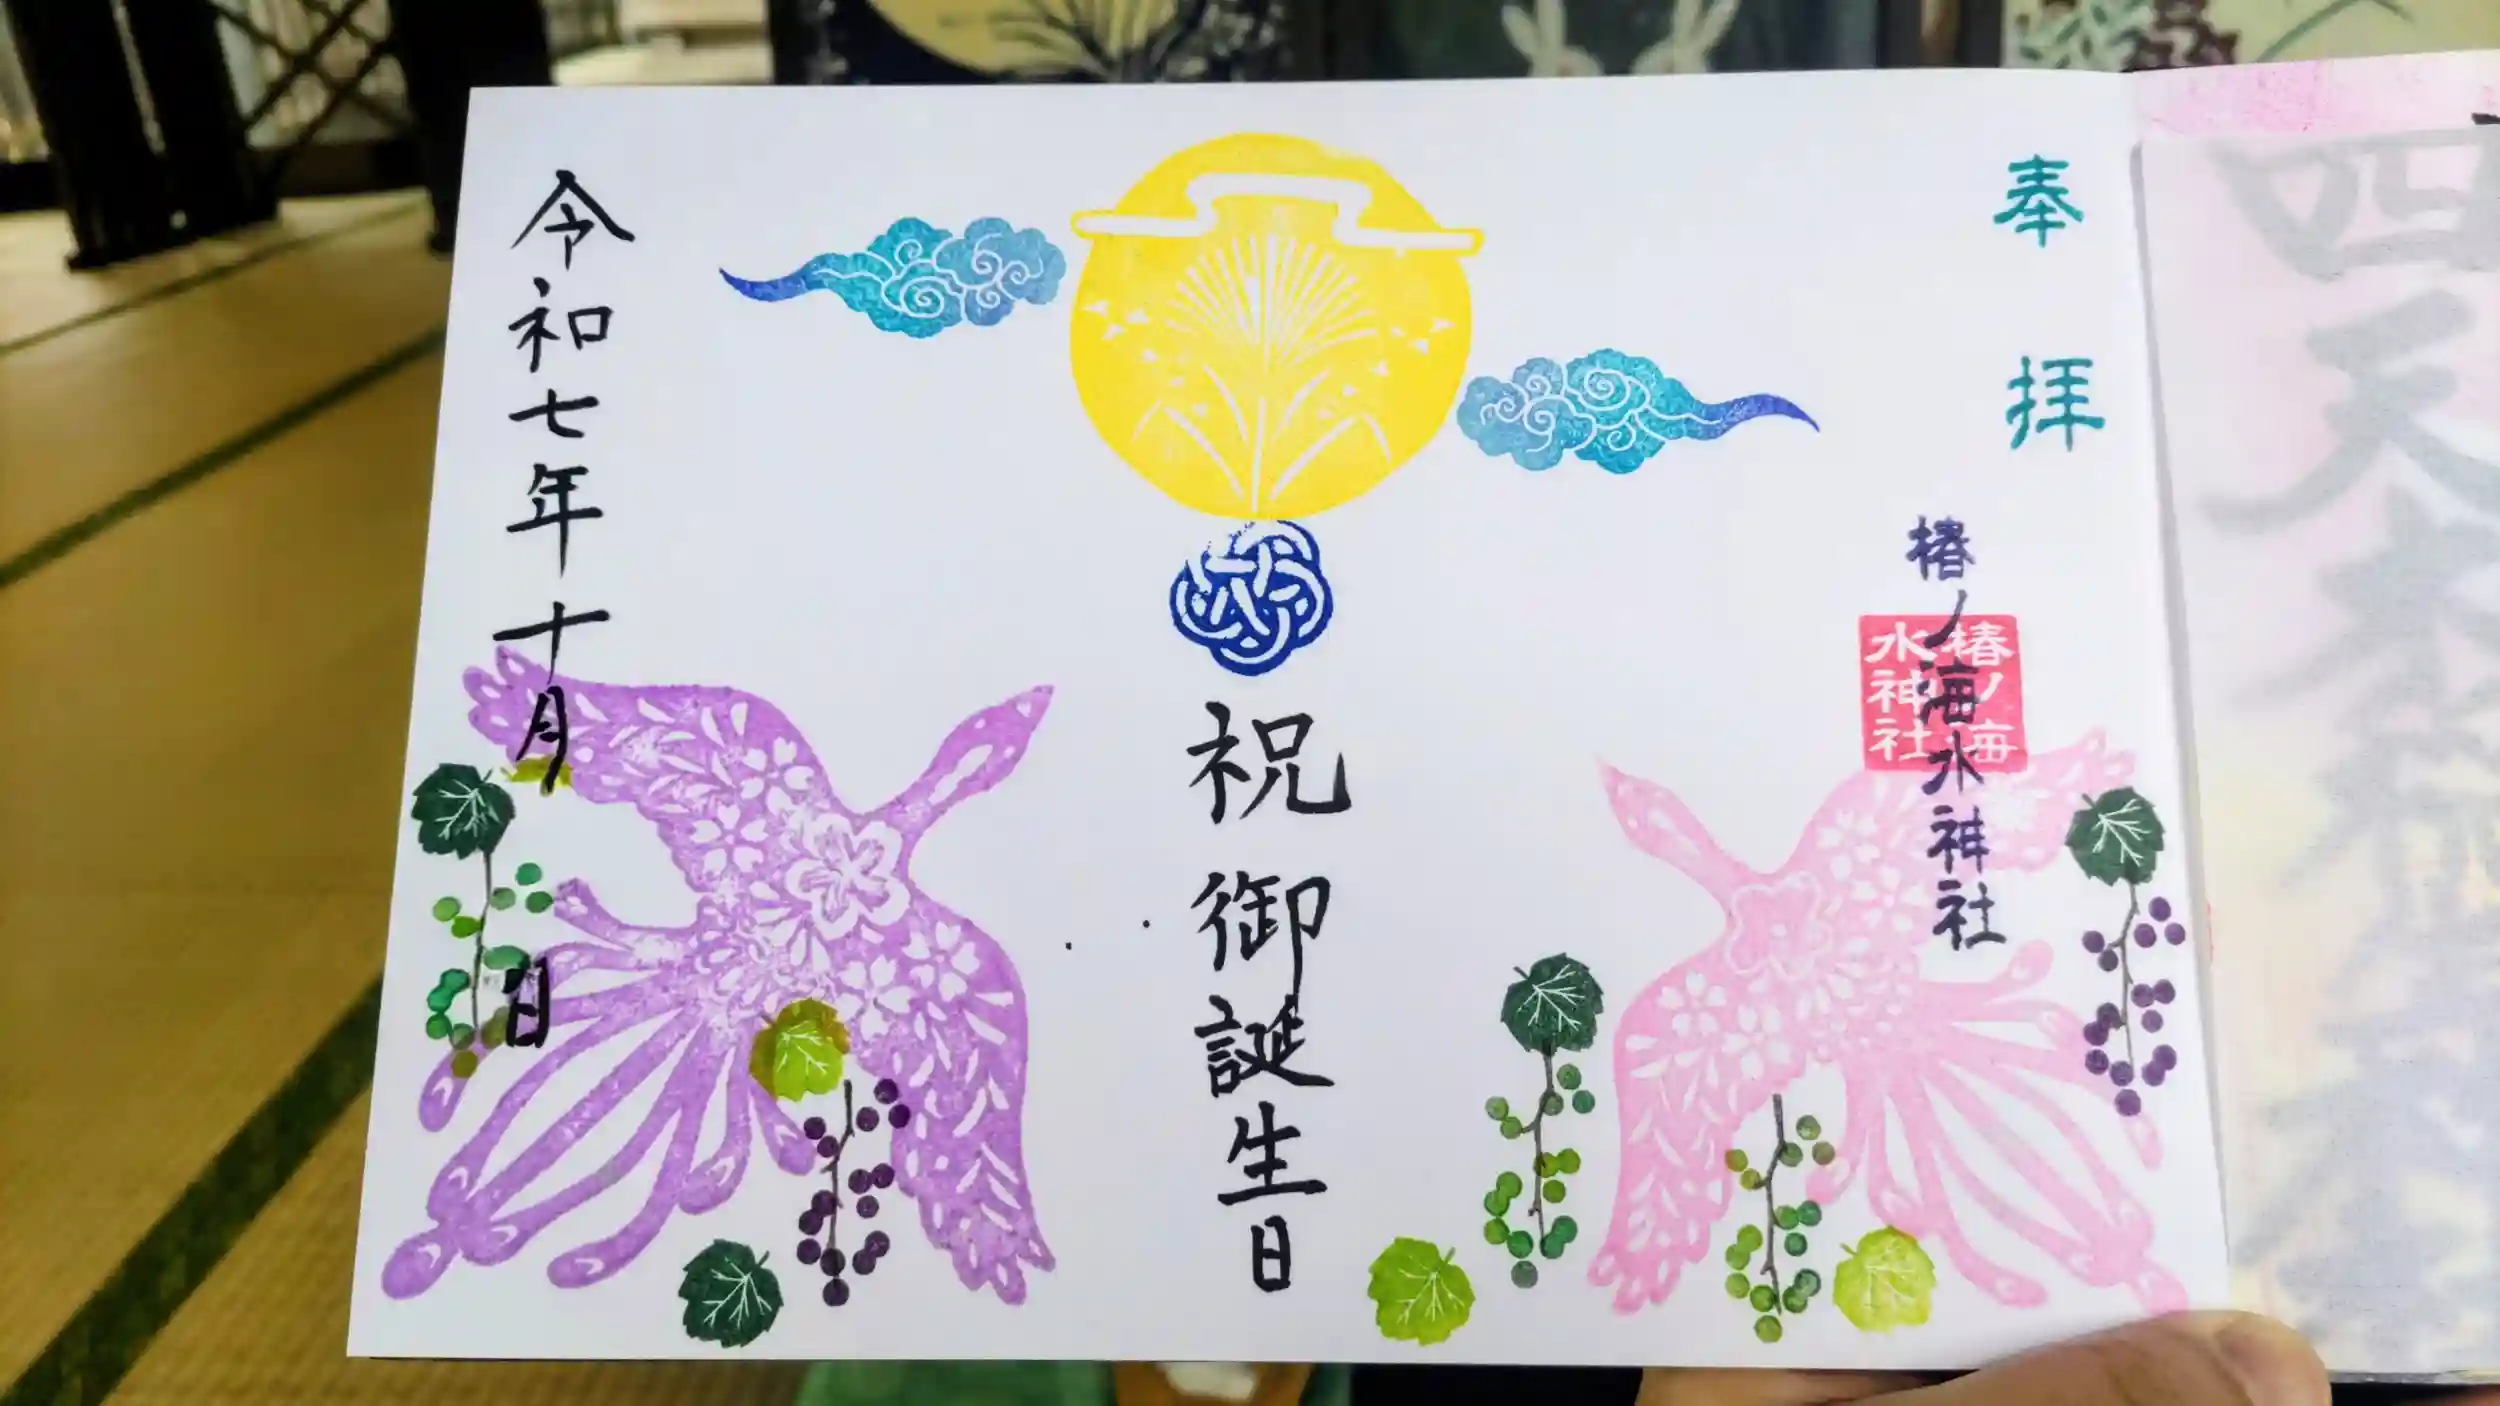 奉拝
椿ノ海水神社
椿ノ海
水神社
祝御誕生日
令和七年十月 日
四天